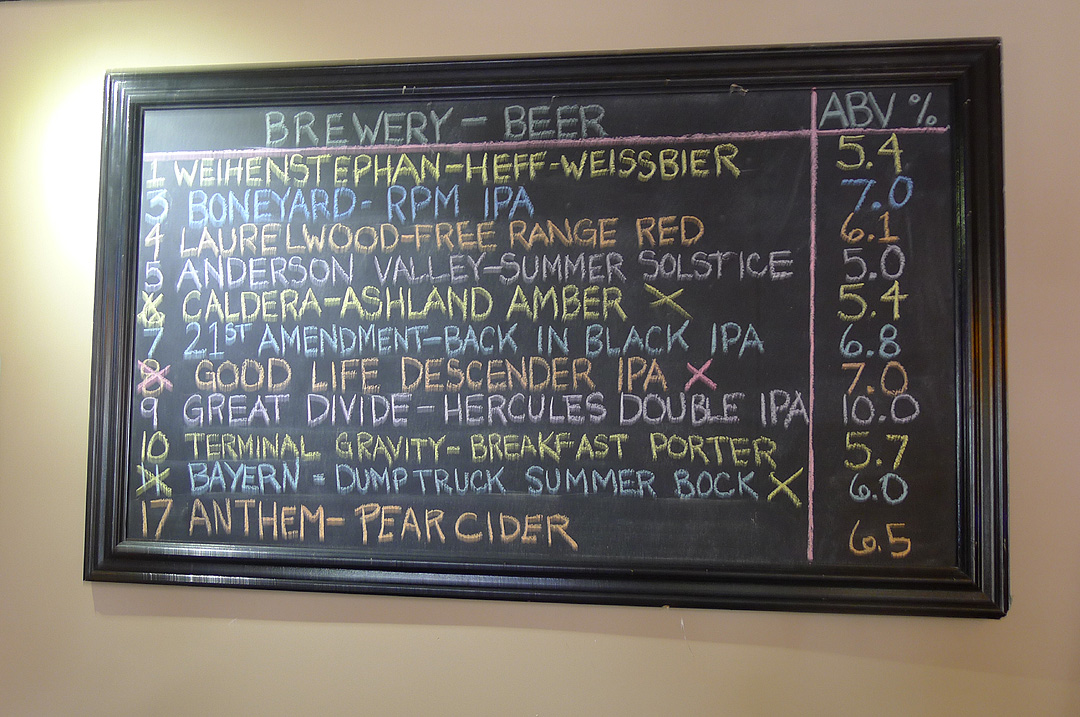 BREWERY - BEER ABV %
1 WEIHENSTEPHAN-HEFF-WEISSBIER 5.4
3 BONEYARD- RPM IPA 7.0
4 LAURELWOOD-FREE RANGE RED 6.1
5 ANDERSON VALLEY-SUMMER SOLSTICE 5.0
6 CALDERA-ASHLAND AMBER X 5.4
7 21ST AMENDMENT-BACK IN BLACK IPA 6.8
8 GOOD LIFE DESCENDER IPA X 7.0
9 GREAT DIVIDE-HERCULES DOUBLE IPA 10.0
10 TERMINAL GRAVITY-BREAKFAST PORTER 5.7
BAYERN - DUMPTRUCK SUMMER BOCK X 6.0
17 ANTHEM- PEAR CIDER 6.5